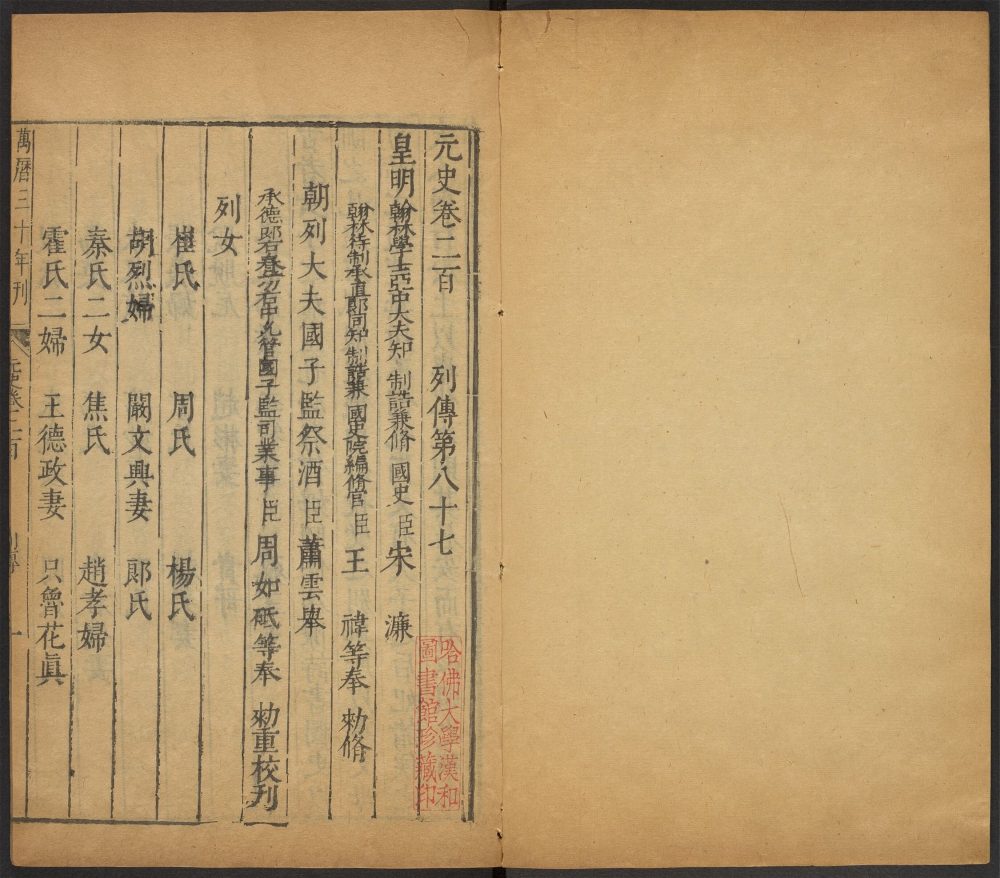 元史卷二百 列傳第八十七
皇明翰林學士亞中大夫知 制誥兼脩 國史 臣 宋 濂
翰林待制承直郎同知 制誥兼 國史院編脩官 臣 王 禕等奉 勑脩
朝列大夫國子監祭酒 臣 蕭雲舉
承德郎右春坊右中允管國子監司業事 臣 周如砥等奉 勑重校刋
列女
崔氏 周氏 楊氏
胡烈婦 闞文興妻 郎氏
秦氏二女 焦氏 趙孝婦
霍氏二婦 王德政妻 只魯花眞
萬曆三十年刊
元史卷二百 列傳 一
哈佛大學漢和
圖書館珍藏印